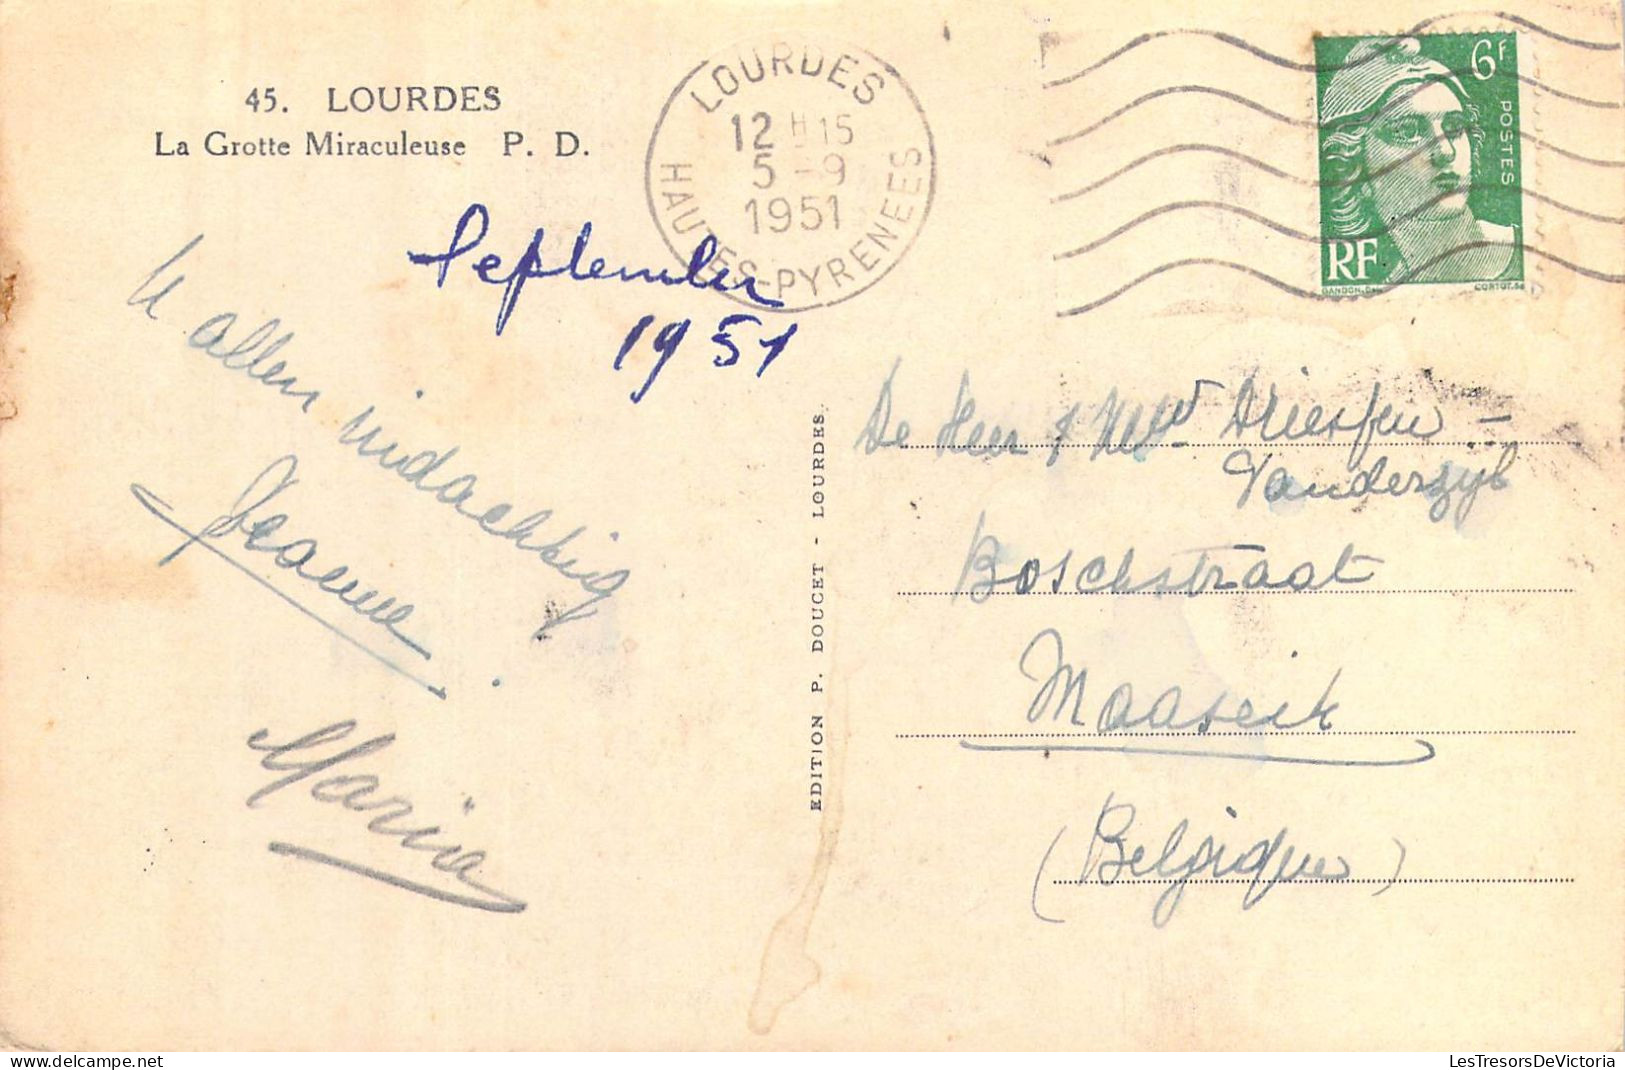 45. LOURDES
La Grotte Miraculeuse P. D.
LOURDES
12 H 15
5 - 9
1951
HAUTES-PYRENEES
6F
POSTES
RF
GANDON.DEL
CORTOT.SC
September
1951
U allen indachtig
Jeanne
Maria
EDITION P. DOUCET - LOURDES
De Heer & Mevr Driessen -
Vanderzijl
Boschstraat
Maaseik
(Belgique)
LesTresorsDeVictoria